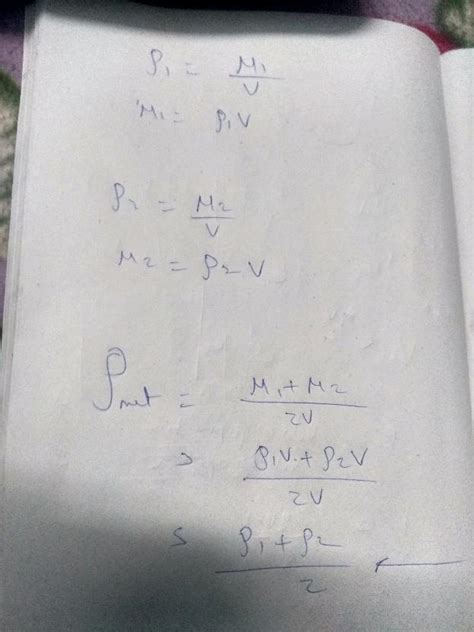 ρ₁ = M₁/V
M₁ = ρ₁V
ρ₂ = M₂/V
M₂ = ρ₂V
ρnet = M₁+M₂/2V
= ρ₁V+ρ₂V/2V
= ρ₁+ρ₂/2 ←